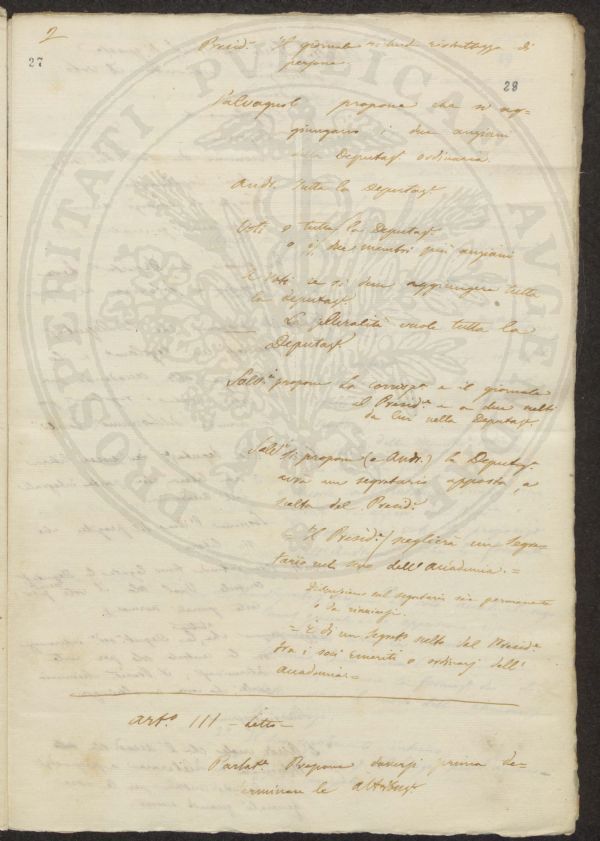 2
27
28
Presid.e Il giornale richiede ristrettezza di
persone.
Salvagnoli propone che si ag=
giungano i due anziani
della Deputaz.e ordinaria
Andr. tutta la Deputaz.e
Voti o tutta la Deputaz.e
o i due membri più anziani
E voti se si deve aggiungere tutta
la deputaz.e
La pluralità vuole tutta la
Deputaz.e
Salv.i propone la corrisp.a e il giornale
al Presid.e e a due scelti
da lui nella Deputaz.e
Salv.i
si propone (e Andr.) la Deputaz.e
un segretario apposta, a
scelta del Presid.e
= Il Presid.e sceglierà un Segre=
tario nel seno dell'Accademia. =
Discussione sul segretario sia permanente
o da
= È di un Segret.o scelto dal Presid.e
tra i soci emeriti o ordinarj dell'
Accademia =
Art.o III - Letto -
Parlat.e Propone doversi prima de=
terminare le attribuz.i
PROSPERITATI PUBLICAE AUGENDAE